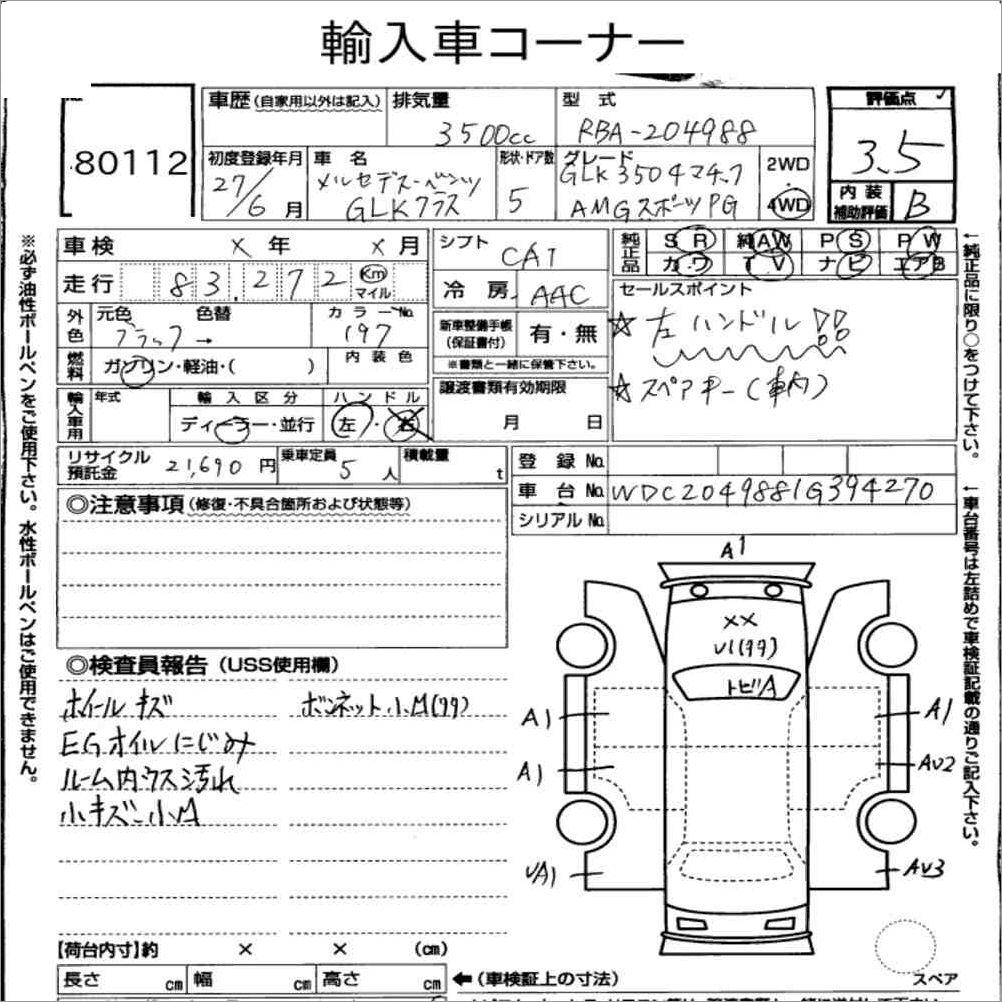 輸入車コーナー
80112
車歴 (自家用以外は記入)
排気量
3500cc
型 式
RBA-204988
評価点
3.5
初度登録年月
27/6 月
車 名
メルセデス-ベンツ
GLKクラス
形状・ドア数
5
グレード
GLK350 4マチック
AMGスポーツPG
2WD
4WD
内装
補助評価
B
車 検 × 年 × 月
走行 83,272 Km
マイル
シフト CA7
冷 房 AAC
純正品
SR 純AW PS PW
カワ TV ナビ エアB
外色
元色 色替
ブラック →
カラーNo.
197
燃料
ガソリン・軽油・( )
内 装 色
新車整備手帳
(保証書付)
有・無
※書類と一緒に保管下さい。
セールスポイント
☆ 左ハンドル!!
☆ スペアキー(車内)
輸入車用
年式
輸 入 区 分
ディーラー・並行
ハ ン ド ル
左・右
譲渡書類有効期限
月 日
リサイクル
預託金
21,690 円
乗車定員
5 人
積載量
t
登 録 No.
車 台 No. WDC2049881G394270
シリアル No.
◎注意事項 (修復・不具合箇所および状態等)
◎検査員報告 (USS使用欄)
ホイールキズ
EGオイルにじみ
ルーム内ウス汚れ
小キズ・小M
ボンネット小M(タタ)
A1
××
U1(タタ)
トビA
A1
A1
A1
AU2
UA1
AU3
スペア
【荷台内寸】約 × × (cm)
長さ cm 幅 cm 高さ cm
←(車検証上の寸法)
※必ず油性ボールペンをご使用下さい。水性ボールペンはご使用できません。
←純正品に限り○をつけて下さい。
←車台番号は左詰めで車検証記載の通りご記入下さい。